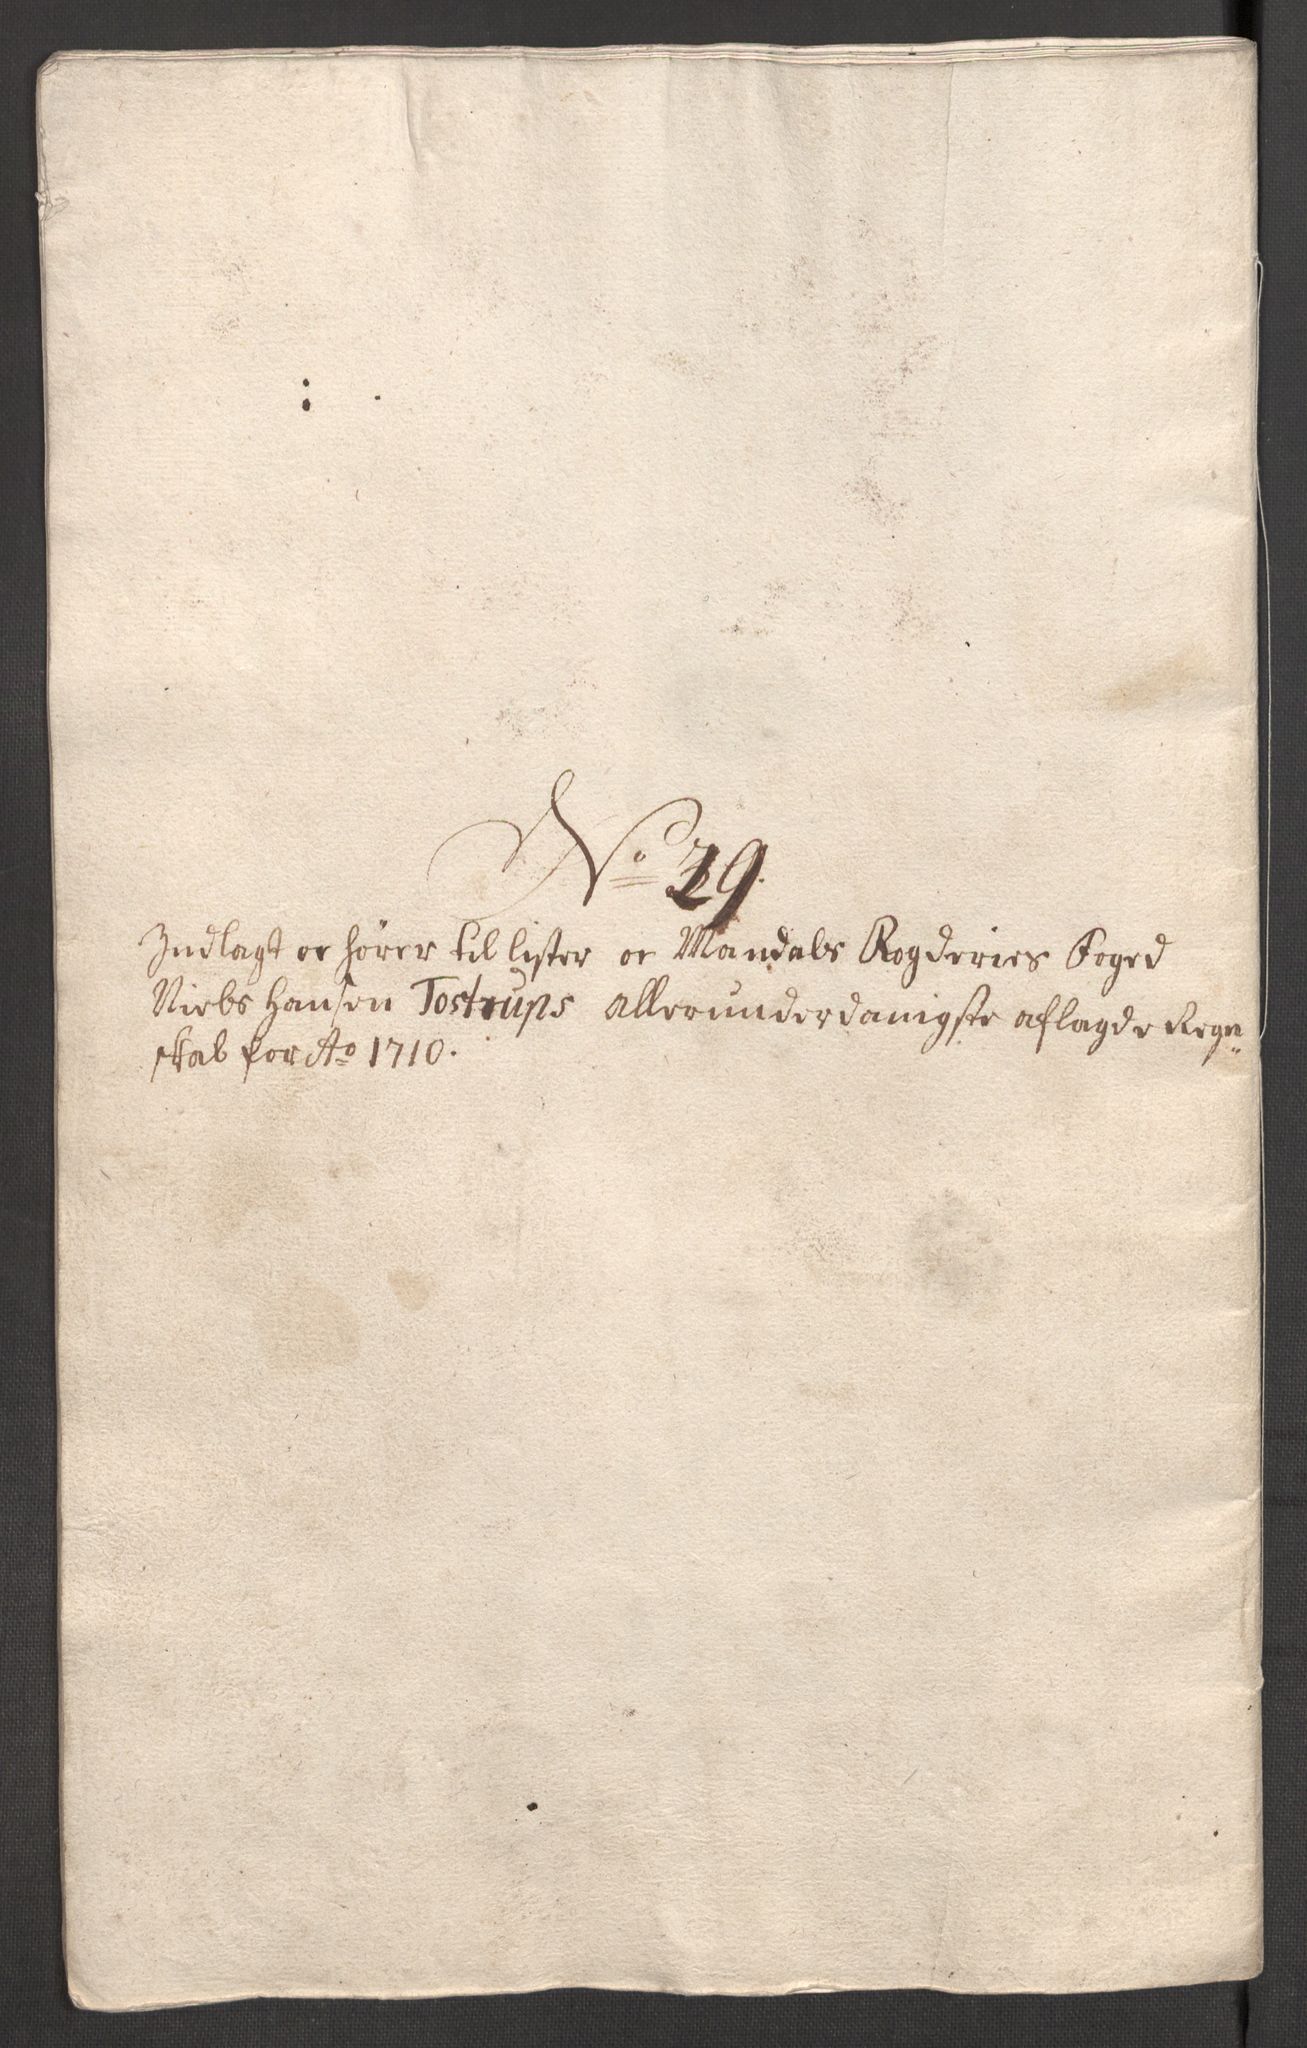 No 29.
Indlagt oc hører til lister oc Mandals Fogderies Foged
Niels Hansen Tostrups allerunderdanigste aflagde Regn„
skab for Ao 1710.